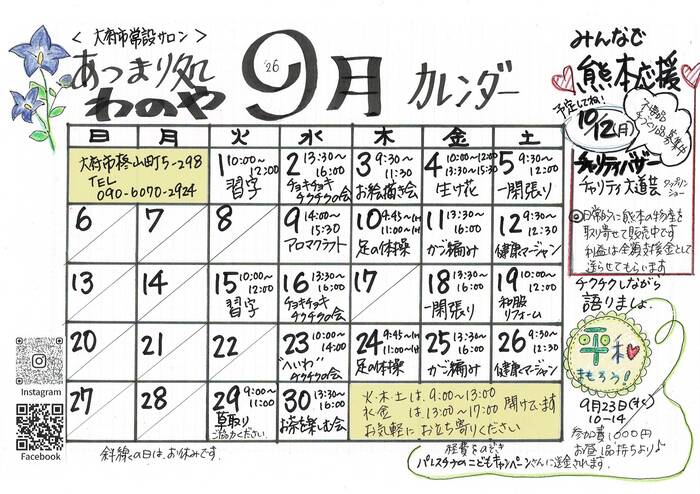 ＜大府市常設サロン＞
あつまり処
わのや
'26
9月
カレンダー
日 月 火 水 木 金 土
大府市柊山町5-298
TEL
090-6070-2924
1 10:00〜12:00
習字
2 13:30〜16:00
チョキチョキ
チクチクの会
3 9:30〜11:30
お絵描き会
4 10:00〜12:00
13:30〜15:00
生け花
5 9:30〜
一閑張り
6
7
8
9 14:00〜15:30
アロマクラフト
10 9:45〜(1H)
11:00〜(1H)
足の体操
11 13:30〜16:00
かご編み
12 9:30〜12:30
健康マージャン
13
14
15 10:00〜12:00
習字
16 13:30〜16:00
チョキチョキ
チクチクの会
17
18 13:30〜16:00
一閑張り
19 10:00〜12:00
和服
リフォーム
20
21
22
23 10:00〜14:00
"へいわ"
チクチクの会
24 9:45〜(1H)
11:00〜(1H)
足の体操
25 13:30〜16:00
かご編み
26 9:30〜12:30
健康マージャン
27
28
29 9:00〜11:00
草取り
ご協力ください。
30 13:30〜16:00
お茶を楽しむ会
火・木・土は、9:00〜13:00
水・金 は13:00〜17:00 開けています
お気軽に お立ち寄りください
斜線の日は、お休みです。
Instagram
Facebook
みんなで
熊本応援
予定してね!
10/12(月)
募集中
チャリティバザー
チャリティ大道芸
◎日常的に熊本の物産を
取り寄せて販売中です
利益は全額支援金として
送らせてもらいます
チクチクしながら
語りましょ。
平和
きもろう!
9月23日(水)
10-14
参加費1000円
お昼1品持ちより♪
経費をのぞき
パレスチナのこどもキャンペーンさんに送金されます。